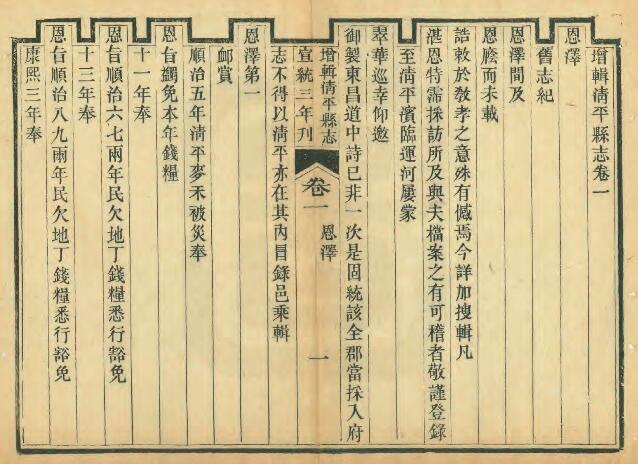 增輯清平縣志卷一
恩澤
舊志紀
恩澤間及
恩膫而未載
誥敕於敎孝之意殊有憾焉今詳加搜輯凡
湛恩特霈採訪所及與夫檔案之有可稽者敬謹登錄
至清平濱臨運河屢蒙
翠華巡幸仰邀
御製東昌道中詩已非一次是固統該全郡當採入府
增輯清平縣志
宣統三年刊
卷一
恩澤
一
志不得以清平亦在其內冒錄邑乘輯
恩澤第一
䘏賞
順治五年清平麥禾被災奉
恩旨蠲免本年錢糧
十一年奉
恩旨順治六七兩年民欠地丁錢糧悉行豁免
十三年奉
恩旨順治八九兩年民欠地丁錢糧悉行豁免
康熙三年奉